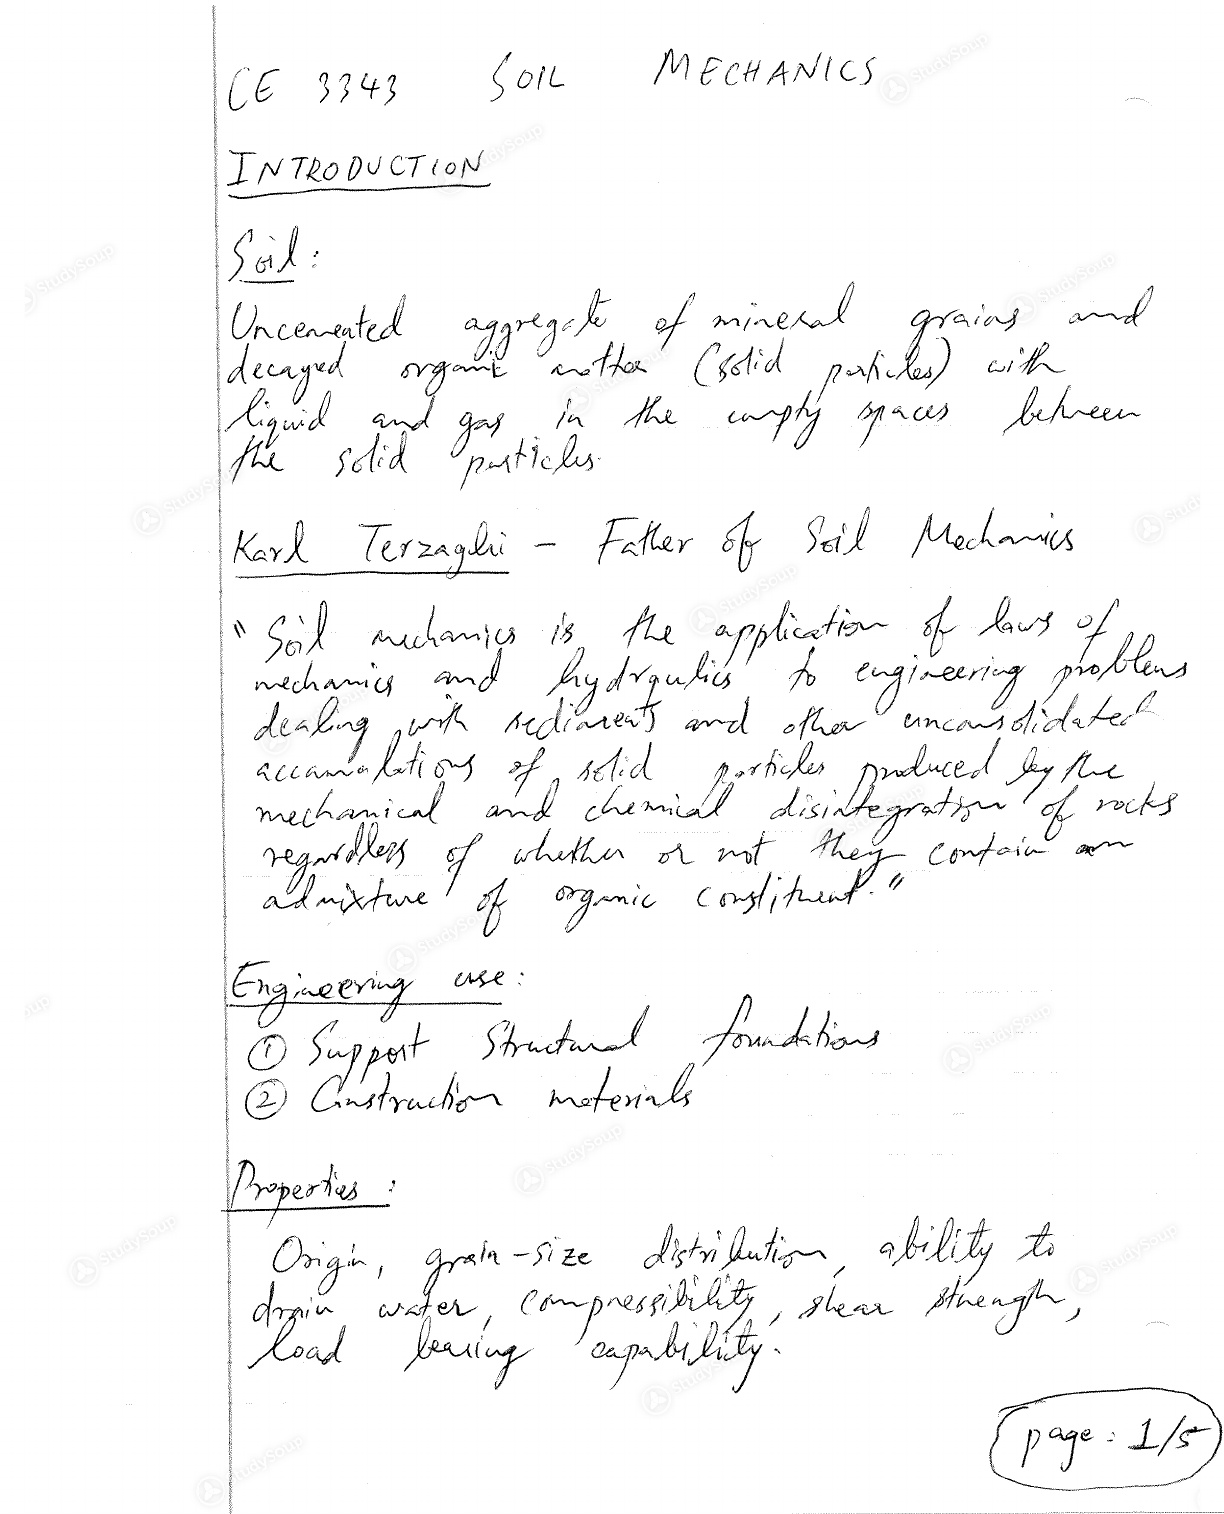 CE 3343 SOIL MECHANICS
INTRODUCTION
Soil:
Uncemented aggregate of mineral grains and
decayed organic matter (solid particles) with
liquid and gas in the empty spaces between
the solid particles.
Karl Terzaghi - Father of Soil Mechanics
"Soil mechanics is the application of laws of
mechanics and hydraulics to engineering problems
dealing with sediments and other unconsolidated
accumulations of solid particles produced by the
mechanical and chemical disintegration of rocks
regardless of whether or not they contain an
admixture of organic constituent."
Engineering use:
① Support Structural foundations
② Construction materials
Properties:
Origin, grain-size distribution, ability to
drain water, compressibility, shear strength,
load bearing capability.
page: 1/5
StudySoup